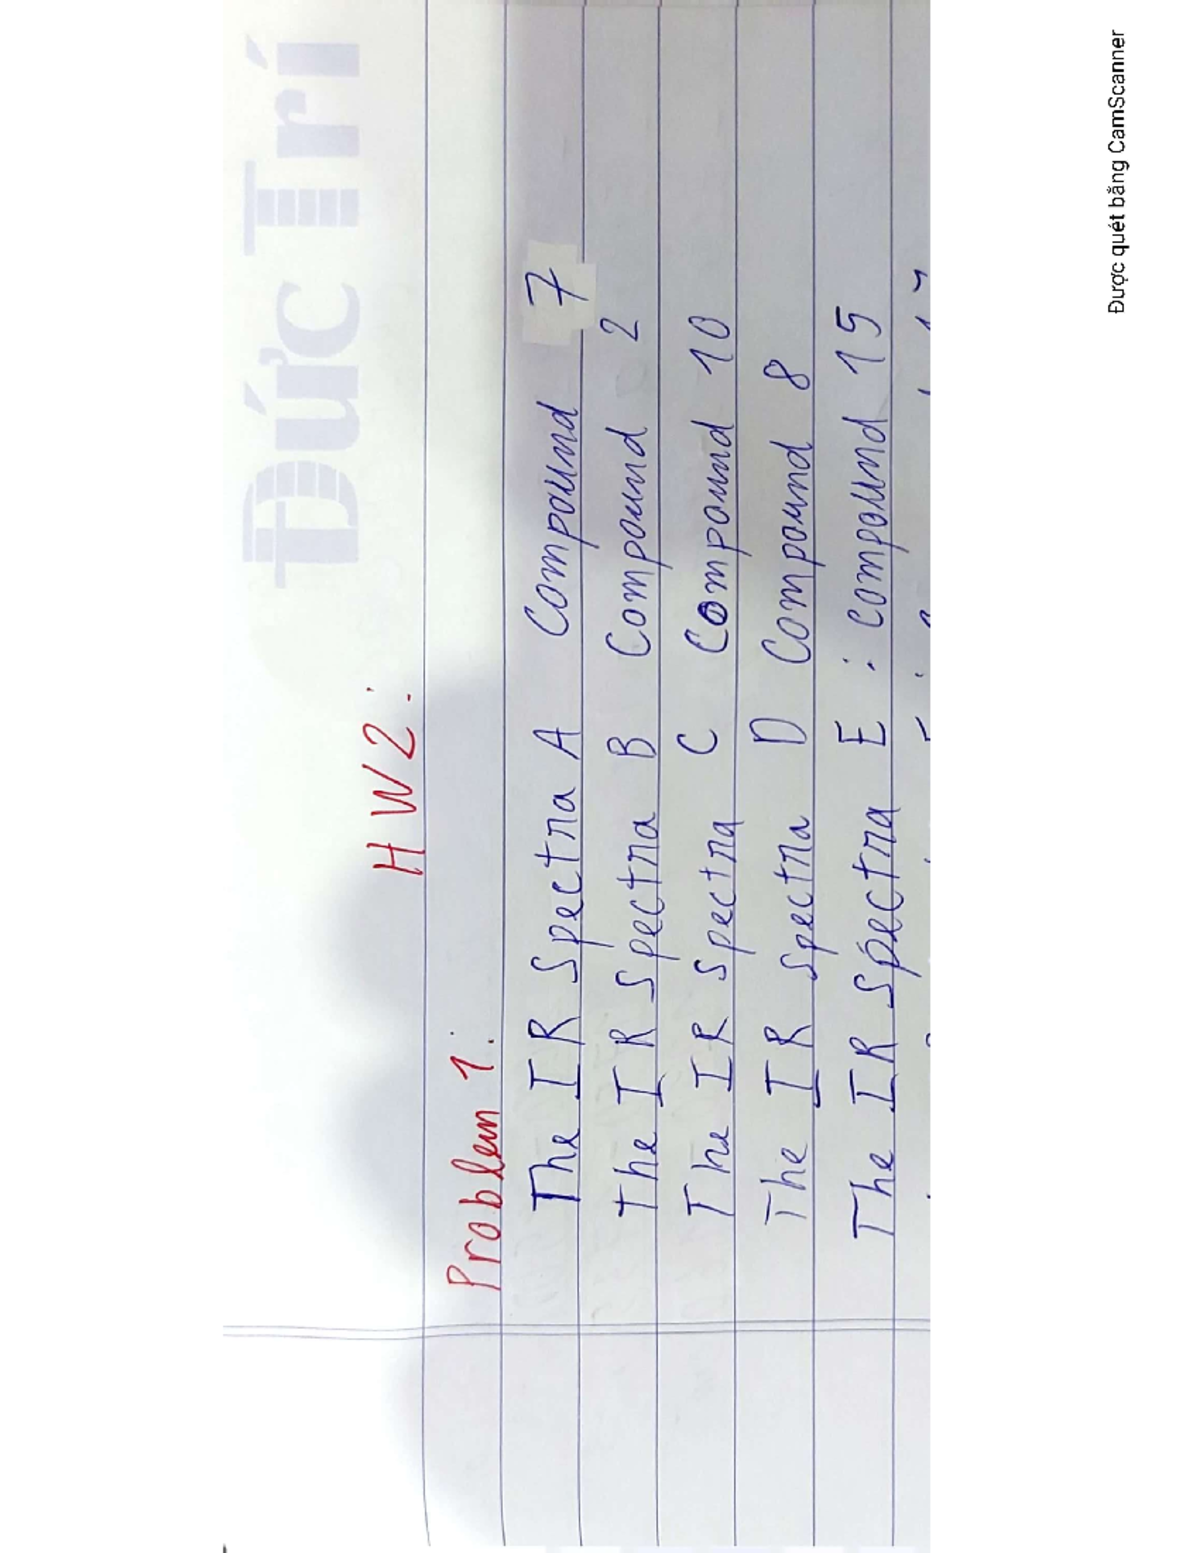 Đức Trí
HW2:
Problem 1:
The IR Spectra A Compound 7
The IR Spectra B Compound 2
The IR Spectra C Compound 10
The IR Spectra D Compound 8
The IR Spectra E : Compound 15
Được quét bằng CamScanner